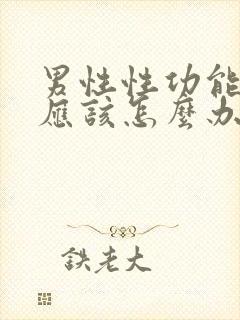 男性性功能
應該怎麼办
鉄老大